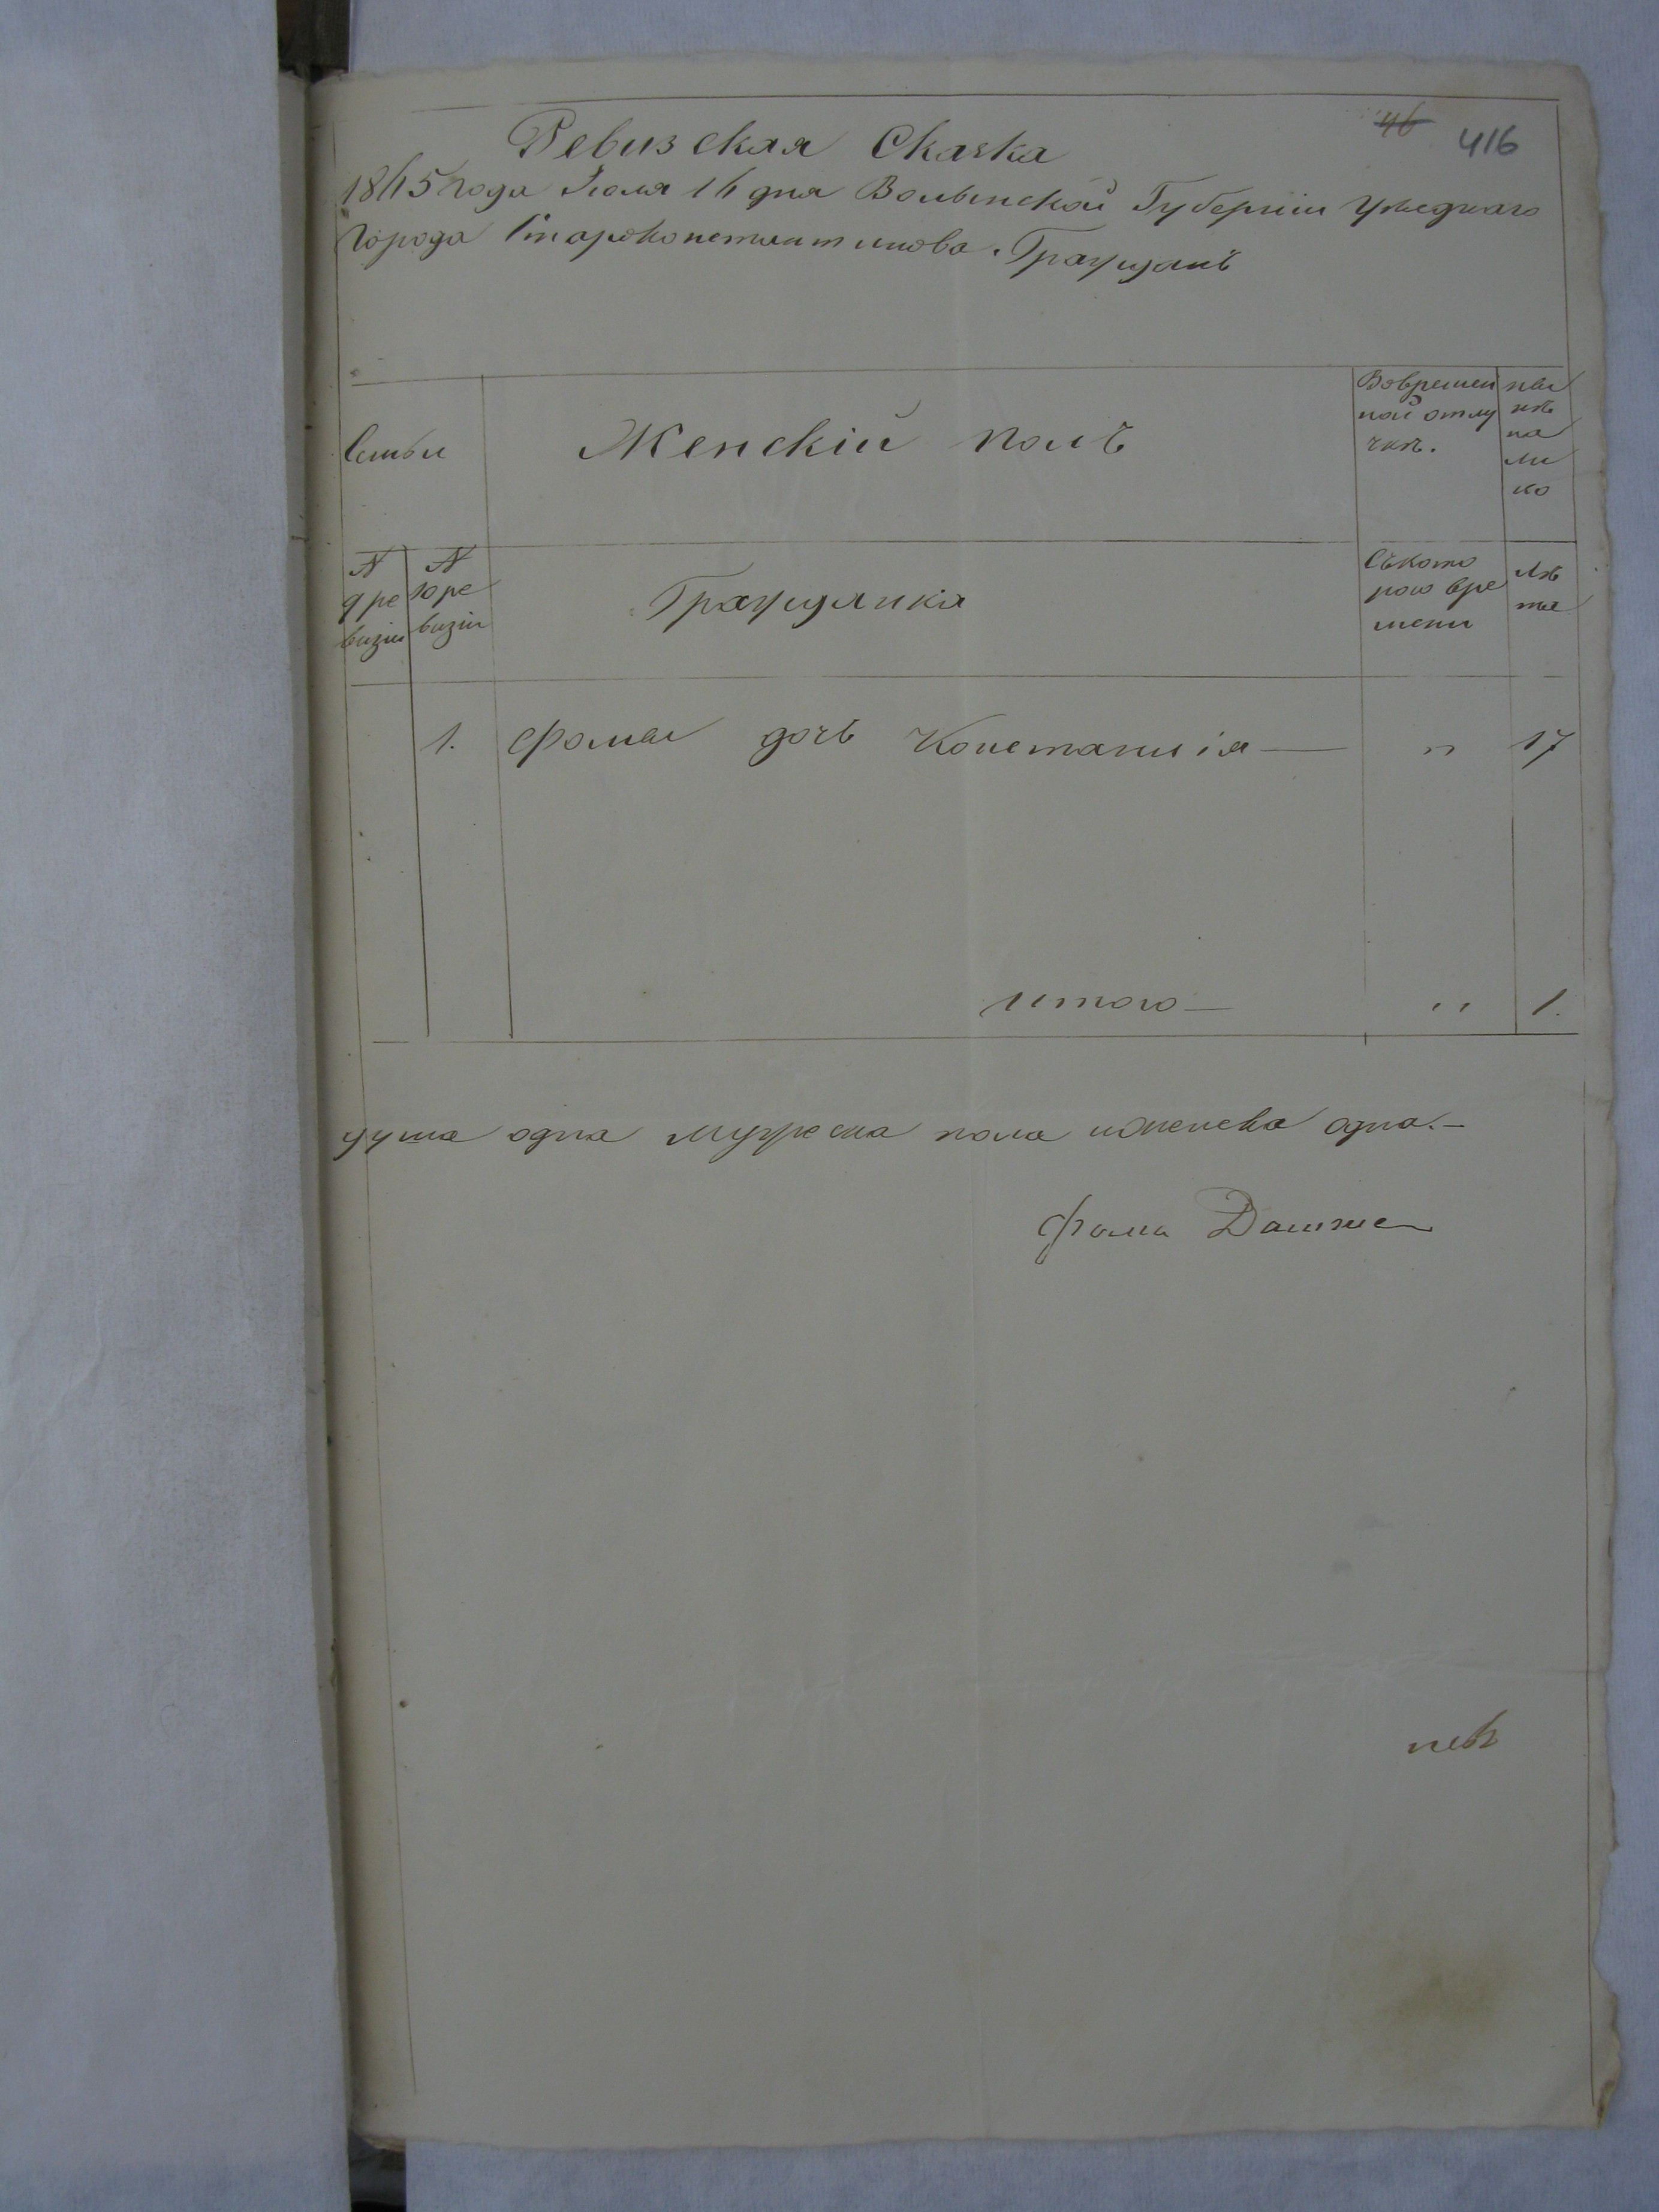 46 416
Ревизская Сказка
1865 года Іюля 16 дня Волынской Губерніи Уѣзднаго
Города Староконстантинова. Гражданъ
Семьи
Женскій полъ
Вовремен
ной отлу
чкѣ.
ны
нѣ
на
ли
цо
N
9 ре
визіи
N
10 ре
визіи
Гражданка
Съкото
раго вре
мени
Лѣ
та
1. Фомы дочь Констанція — " 17
итого — " 1.
душа одна мужеска пола иженска одна. —
Фома